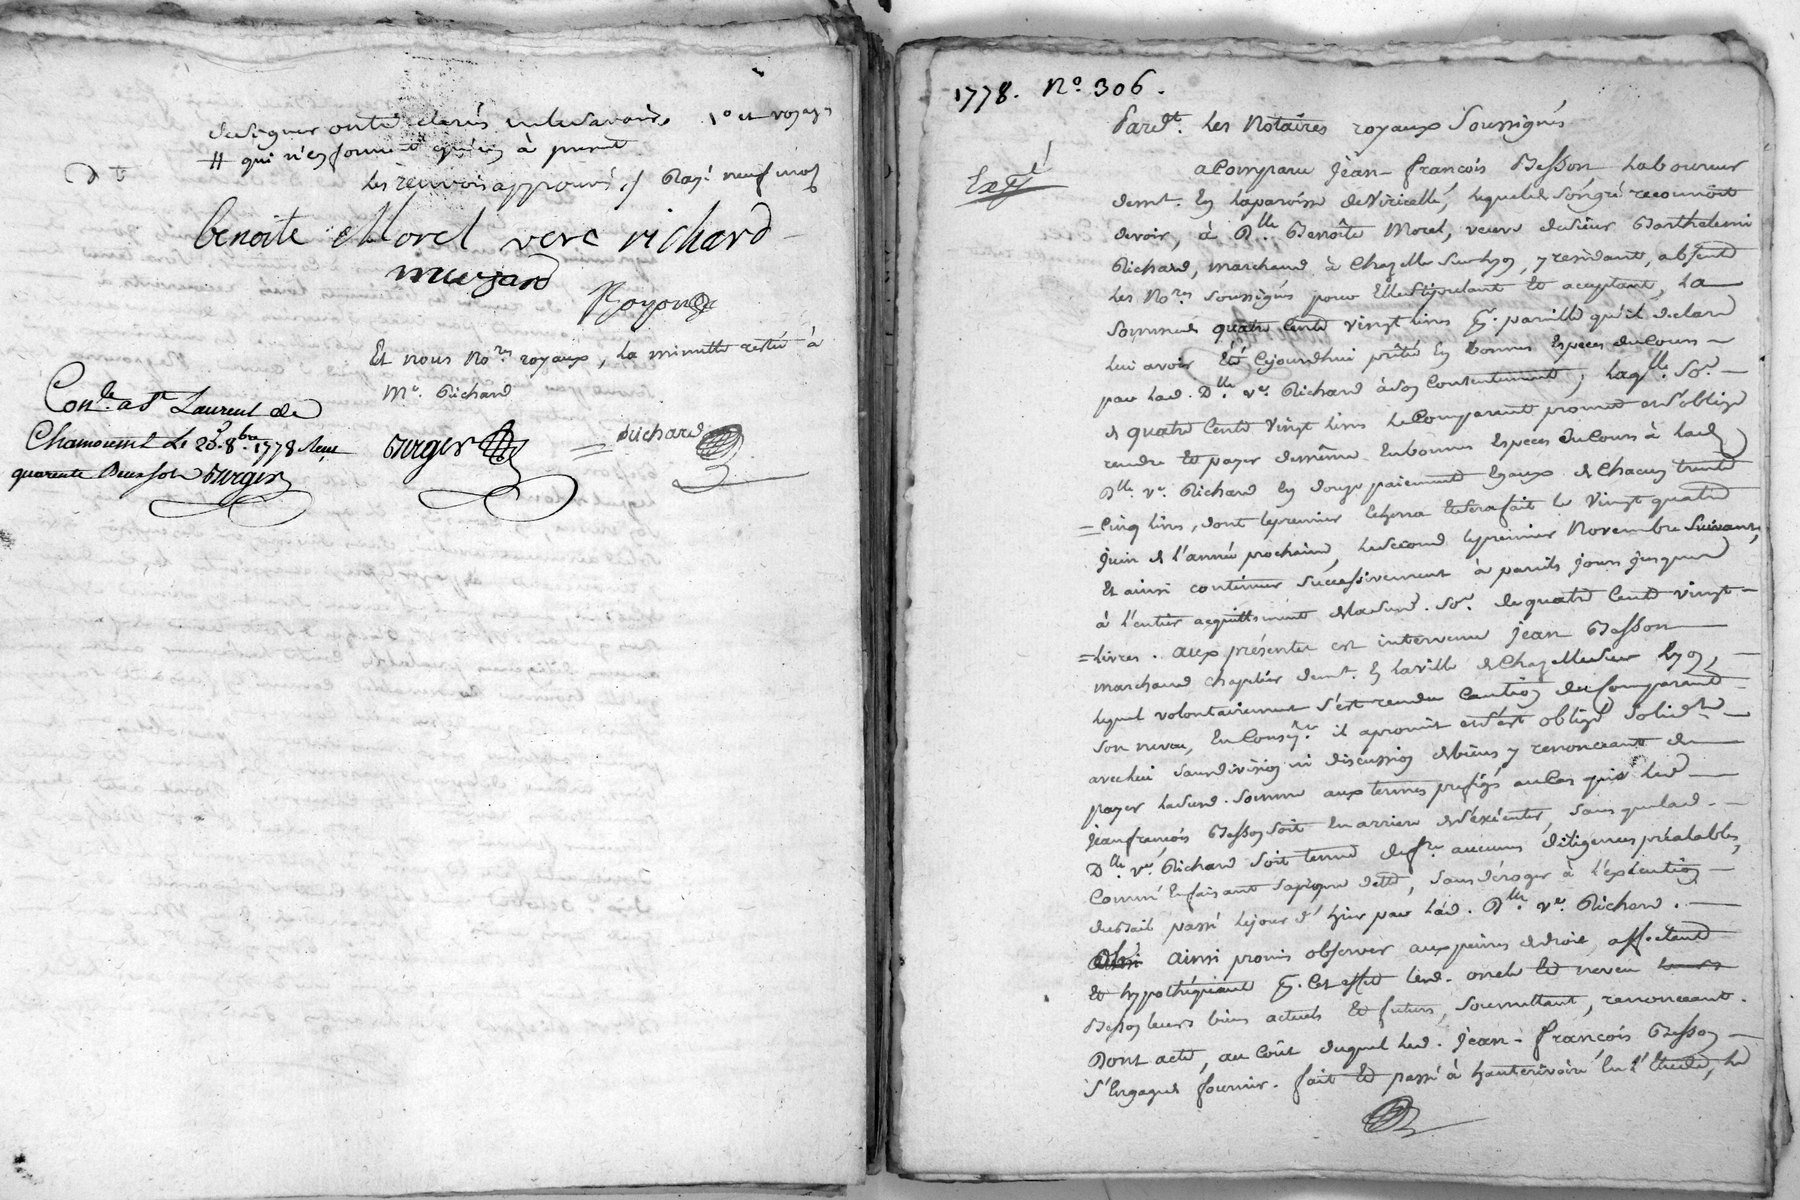 de signer ont déclarés ne le savoir. 1° et voyage
# qui n'en forment qu'un à present
les renvois approuvés / Rayé neuf mots
benoite Morel veve richard
muzard
Et nous No.res royaux, la minutte restée à
Me. Richard
Con.lé à St Laurent de
Chamousset Le 23. 8.bre 1778 Reçu
quarente Deux sols
Richard
1778. N° 306.
Pard.t les Notaires royaux Soussignés
a Comparu Jean-françois Besson Laboureur
dem.t en la paroisse de Viricelle, lequel de son gré reconnoit
devoir, à D.lle Benoîte Morel, veuve de sieur Barthelemi
Richard, marchand à Chazelle sur Lyon, y residant, absente
les No.res soussignés pour Elle stipulant et aceptant, La
Somme de quatre Cents vingt livres P. pareille qu'il declare
lui avoir Eté Cejourdhui prêtée En bonnes Especes du Cours
par lad. D.lle v.e Richard à son Contentement, laq.lle So.e
de quatre Cents vingt livres le Comparant promet et s'oblige
rendre et payer de même En bonnes Especes du Cours à lad.
D.lle v.e Richard En douze paiements Egaux de Chacun trente
=Cinq livres, dont le premier Echerra et sera fait le vingt quatre
Juin de l'année prochaine, le second le premier Novembre Suivant,
Et ainsi continuer successivement à pareils jours jusques
à l'entier acquittement de lad. So.e de quatre Cents vingt
=livres. aux présentes est intervenu Jean Besson
marchand chapelier dem.t En la ville de Chazelle sur Lyon,
lequel volontairement s'est rendu Caution du Comparant
son neveu, En Conseq.ce il a promis et s'est obligé solid.t
avec lui sans division ni discussion de biens y renonceant de
payer lad. somme aux termes prefigés au Cas que led.
Jean françois Besson soit En arriere de s'exécuter, sans que lad.
D.lle v.e Richard soit tenue de f.re aucunes diligences préalables,
Comme En faisant sa propre dette, sans déroger à l'exécution
du bail passé le jour d'hier par lad. D.lle v.e Richard.
ainsi promis observer aux peines de droit, affectant
Et hypothéquant P. Cet effet lesd. oncle Et neveu
Besson leurs biens actuels Et futurs, soumettant, renonceant.
Dont acte, au Coût duquel led. Jean-françois Besson
s'Engage de fournir. fait Et passé à hauterivoire En l'Etude, le